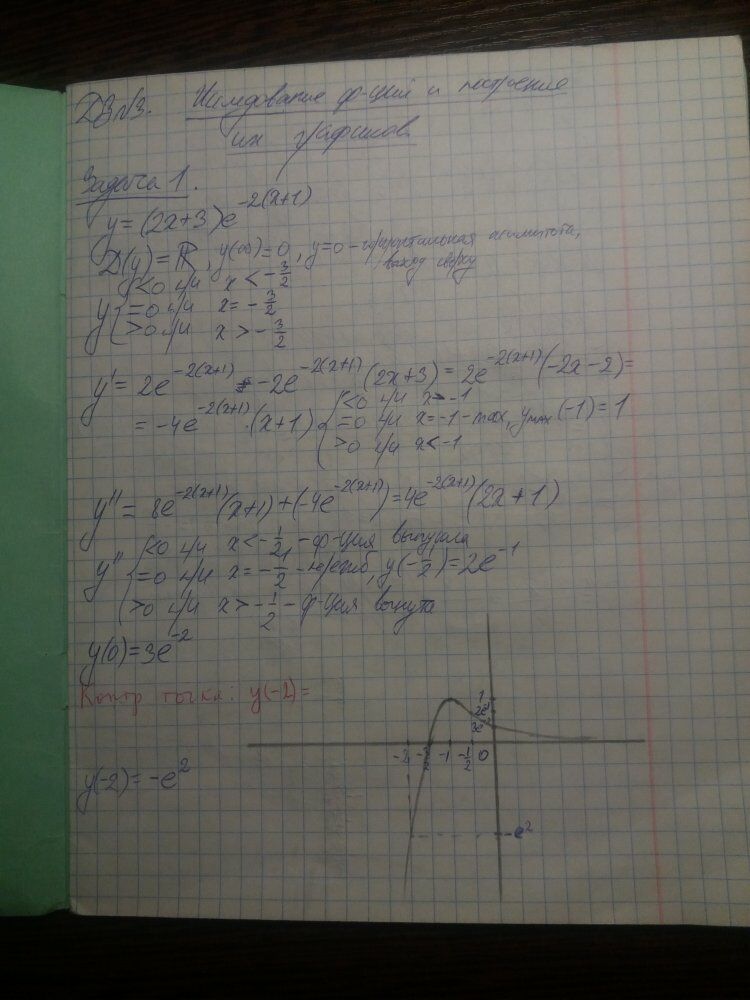 ДЗ №3. Исследование ф-ций и построение
их графиков.
Задача 1.
y=(2x+3)e^{-2(x+1)}
D(y)=ℝ, y(∞)=0, y=0 - горизонтальная асимптота,
выход сверху
y { <0 при x<-3/2
=0 при x=-3/2
>0 при x>-3/2
y'=2e^{-2(x+1)}-2e^{-2(x+1)}(2x+3)=2e^{-2(x+1)}(-2x-2)=
=-4e^{-2(x+1)}·(x+1) { <0 при x>-1
=0 при x=-1-max, y_{max}(-1)=1
>0 при x<-1
y''=8e^{-2(x+1)}(x+1)+(-4e^{-2(x+1)})=4e^{-2(x+1)}(2x+1)
y'' { <0 при x<-1/2 - ф-ция выпукла
=0 при x=-1/2 - перегиб, y(-1/2)=2e^{-1}
>0 при x>-1/2 - ф-ция вогнута
y(0)=3e^{-2}
Контр точка: y(-2)=
y(-2)=-e^2
1
2e^{-1}
3e^{-2}
-2 -3/2 -1 -1/2 0
-e^2